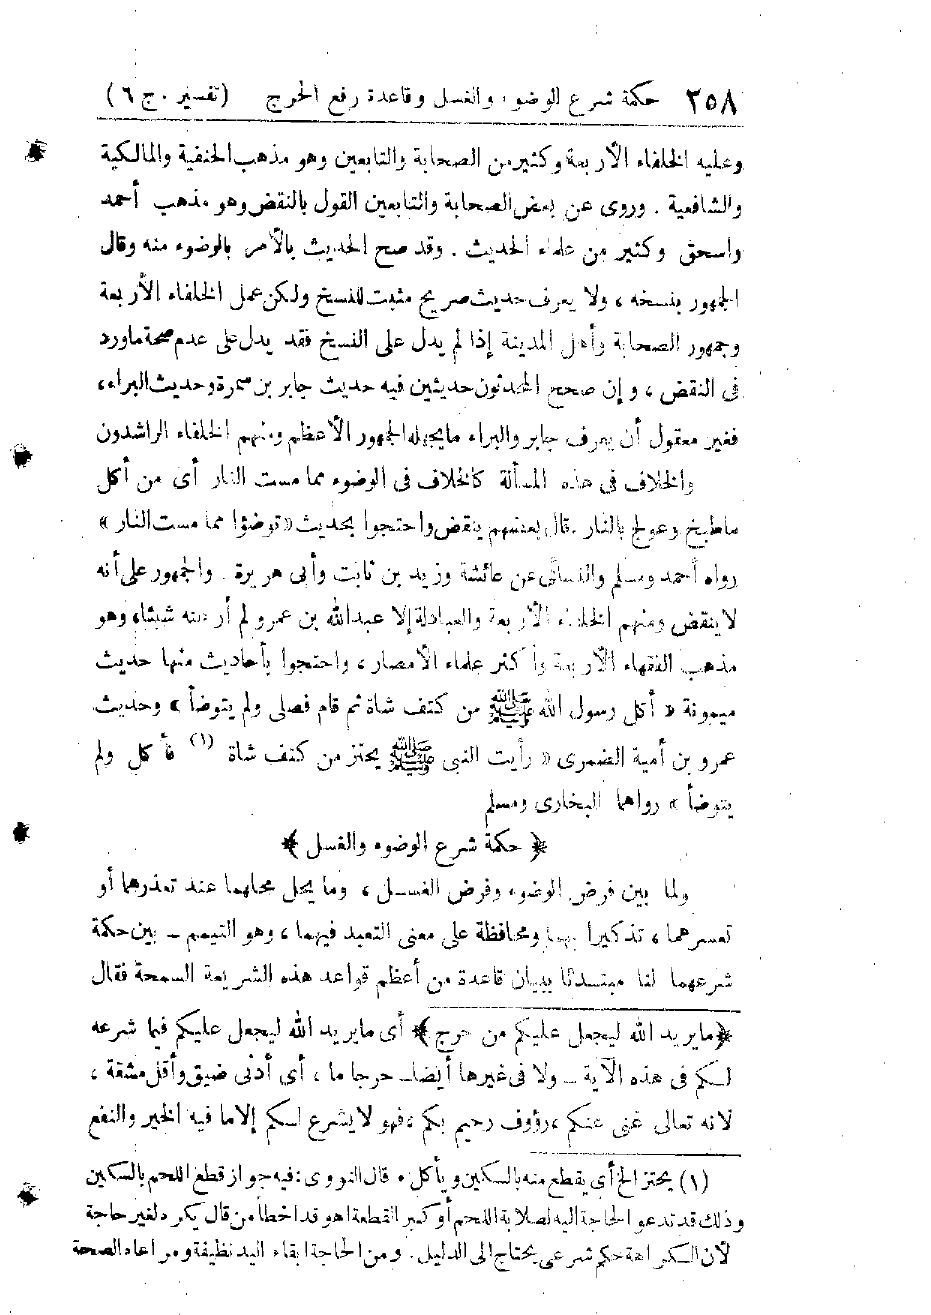 ٢٥٨ حكمة شرع الوضوء والغسل وقاعدة رفع الحرج (تفسير . ج ٦)
وعليه الخلفاء الأربعة وكثير من الصحابة والتابعين وهو مذهب الحنفية والمالكية
والشافعية . وروى عن بعض الصحابة والتابعين القول بالنقض وهو مذهب أحمد
واسحق وكثير من علماء الحديث . وقد صح الحديث بالأمر بالوضوء منه وقال
الجمهور بنسخه ، ولا يعرف حديث صريح مثبت للنسخ ولكن عمل الخلفاء الأربعة
وجمهور الصحابة وأهل المدينة إذا لم يدل على النسخ فقد يدل على عدم صحة ماورد
فى النقض ، وإن صحح المحدثون حديثين فيه حديث جابر بن سمرة وحديث البراء ،
فغير معقول أن يعرف جابر والبراء مايجهله الجمهور الأعظم ومنهم الخلفاء الراشدون
والخلاف فى هذه المسألة كالخلاف فى الوضوء مما مست النار أى من أكل
ماطبخ وعولج بالنار . قال بعضهم ينقض واحتجوا بحديث «توضؤا مما مست النار »
رواه أحمد ومسلم والنسائى عن عائشة وزيد بن ثابت وأبى هريرة . والجمهور على أنه
لا ينقض ومنهم الخلفاء الأربعة والعبادلة إلا عبدالله بن عمرو لم أر عنه شيئا، وهو
مذهب الفقهاء الأربعة وأكثر علماء الأمصار ، واحتجوا بأحاديث منها حديث
ميمونة « أكل رسول الله ﷺ من كتف شاة ثم قام فصلى ولم يتوضأ » وحديث
عمرو بن أمية الضمرى « رأيت النبى ﷺ يحتز من كتف شاة (١) فأكل ولم
يتوضأ » رواهما البخارى ومسلم
﴿ حكمة شرع الوضوء والغسل ﴾
ولما بين فرض الوضوء وفرض الغسل ، وما يحل محلهما عند تعذرهما أو
تعسرهما ، تذكيرا بهما ومحافظة على معنى التعبد فيهما ، وهو التيمم – بين حكمة
شرعهما لنا مبتدئا ببيان قاعدة من أعظم قواعد هذه الشريعة السمحة فقال
﴿مايريد الله ليجعل عليكم من حرج﴾ أى مايريد الله ليجعل عليكم فيما شرعه
لكم فى هذه الآية – ولا فى غيرها أيضا– حرجا ما ، أى أدنى ضيق وأقل مشقة ،
لانه تعالى غنى عنكم ، رؤوف رحيم بكم ، فهو لا يشرع لكم إلا ما فيه الخير والنفع
(١) يحتز الخ أى يقطع منه بالسكين ويأكل . قال النووى : فيه جواز قطع اللحم بالسكين
وذلك قد تدعو الحاجة اليه لصلابة اللحم أو كبر القطعة اهو قد اخطأ من قال يكره لغير حاجة
لأن الكراهة حكم شرعى يحتاج الى الدليل . ومن الحاجة ابقاء اليد نظيفة ومراعاة الصحة